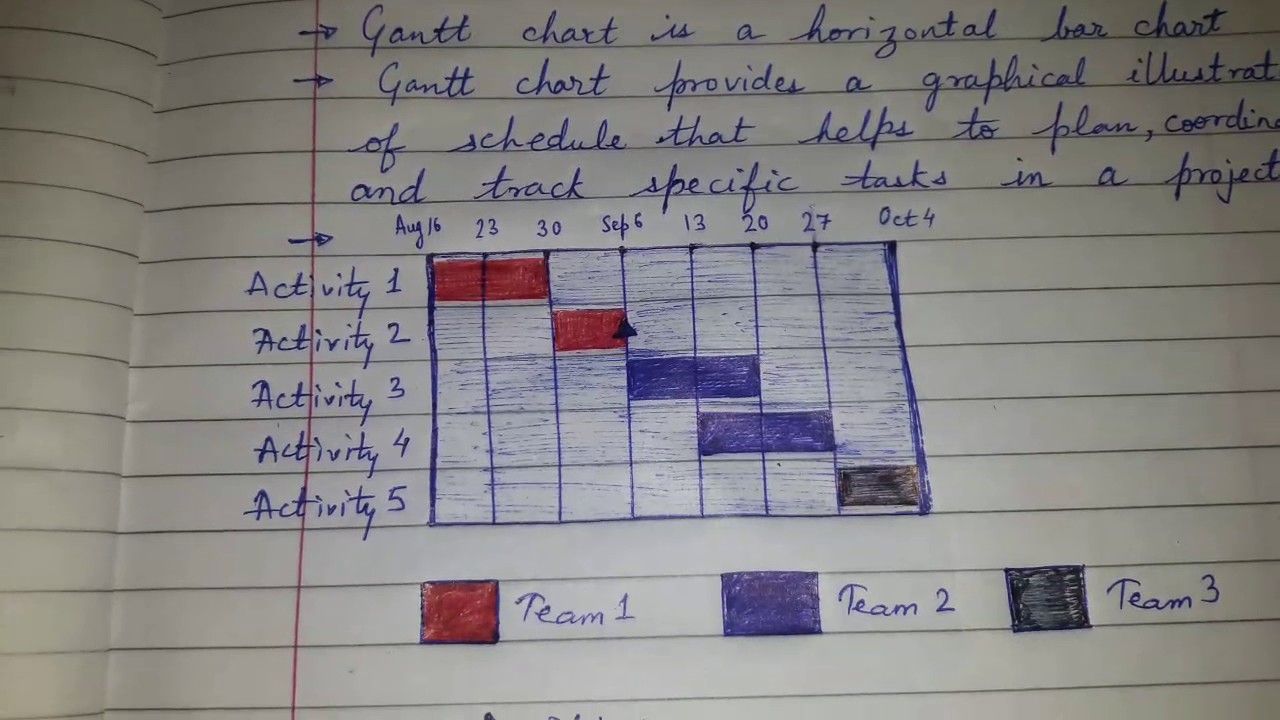 → Gantt chart is a horizontal bar chart
→ Gantt chart provides a graphical illustrat
of schedule that helps to plan, coordina
and track specific tasks in a project
→ Aug 16 23 30 Sep 6 13 20 27 Oct 4
Activity 1
Activity 2
Activity 3
Activity 4
Activity 5
Team 1 Team 2 Team 3